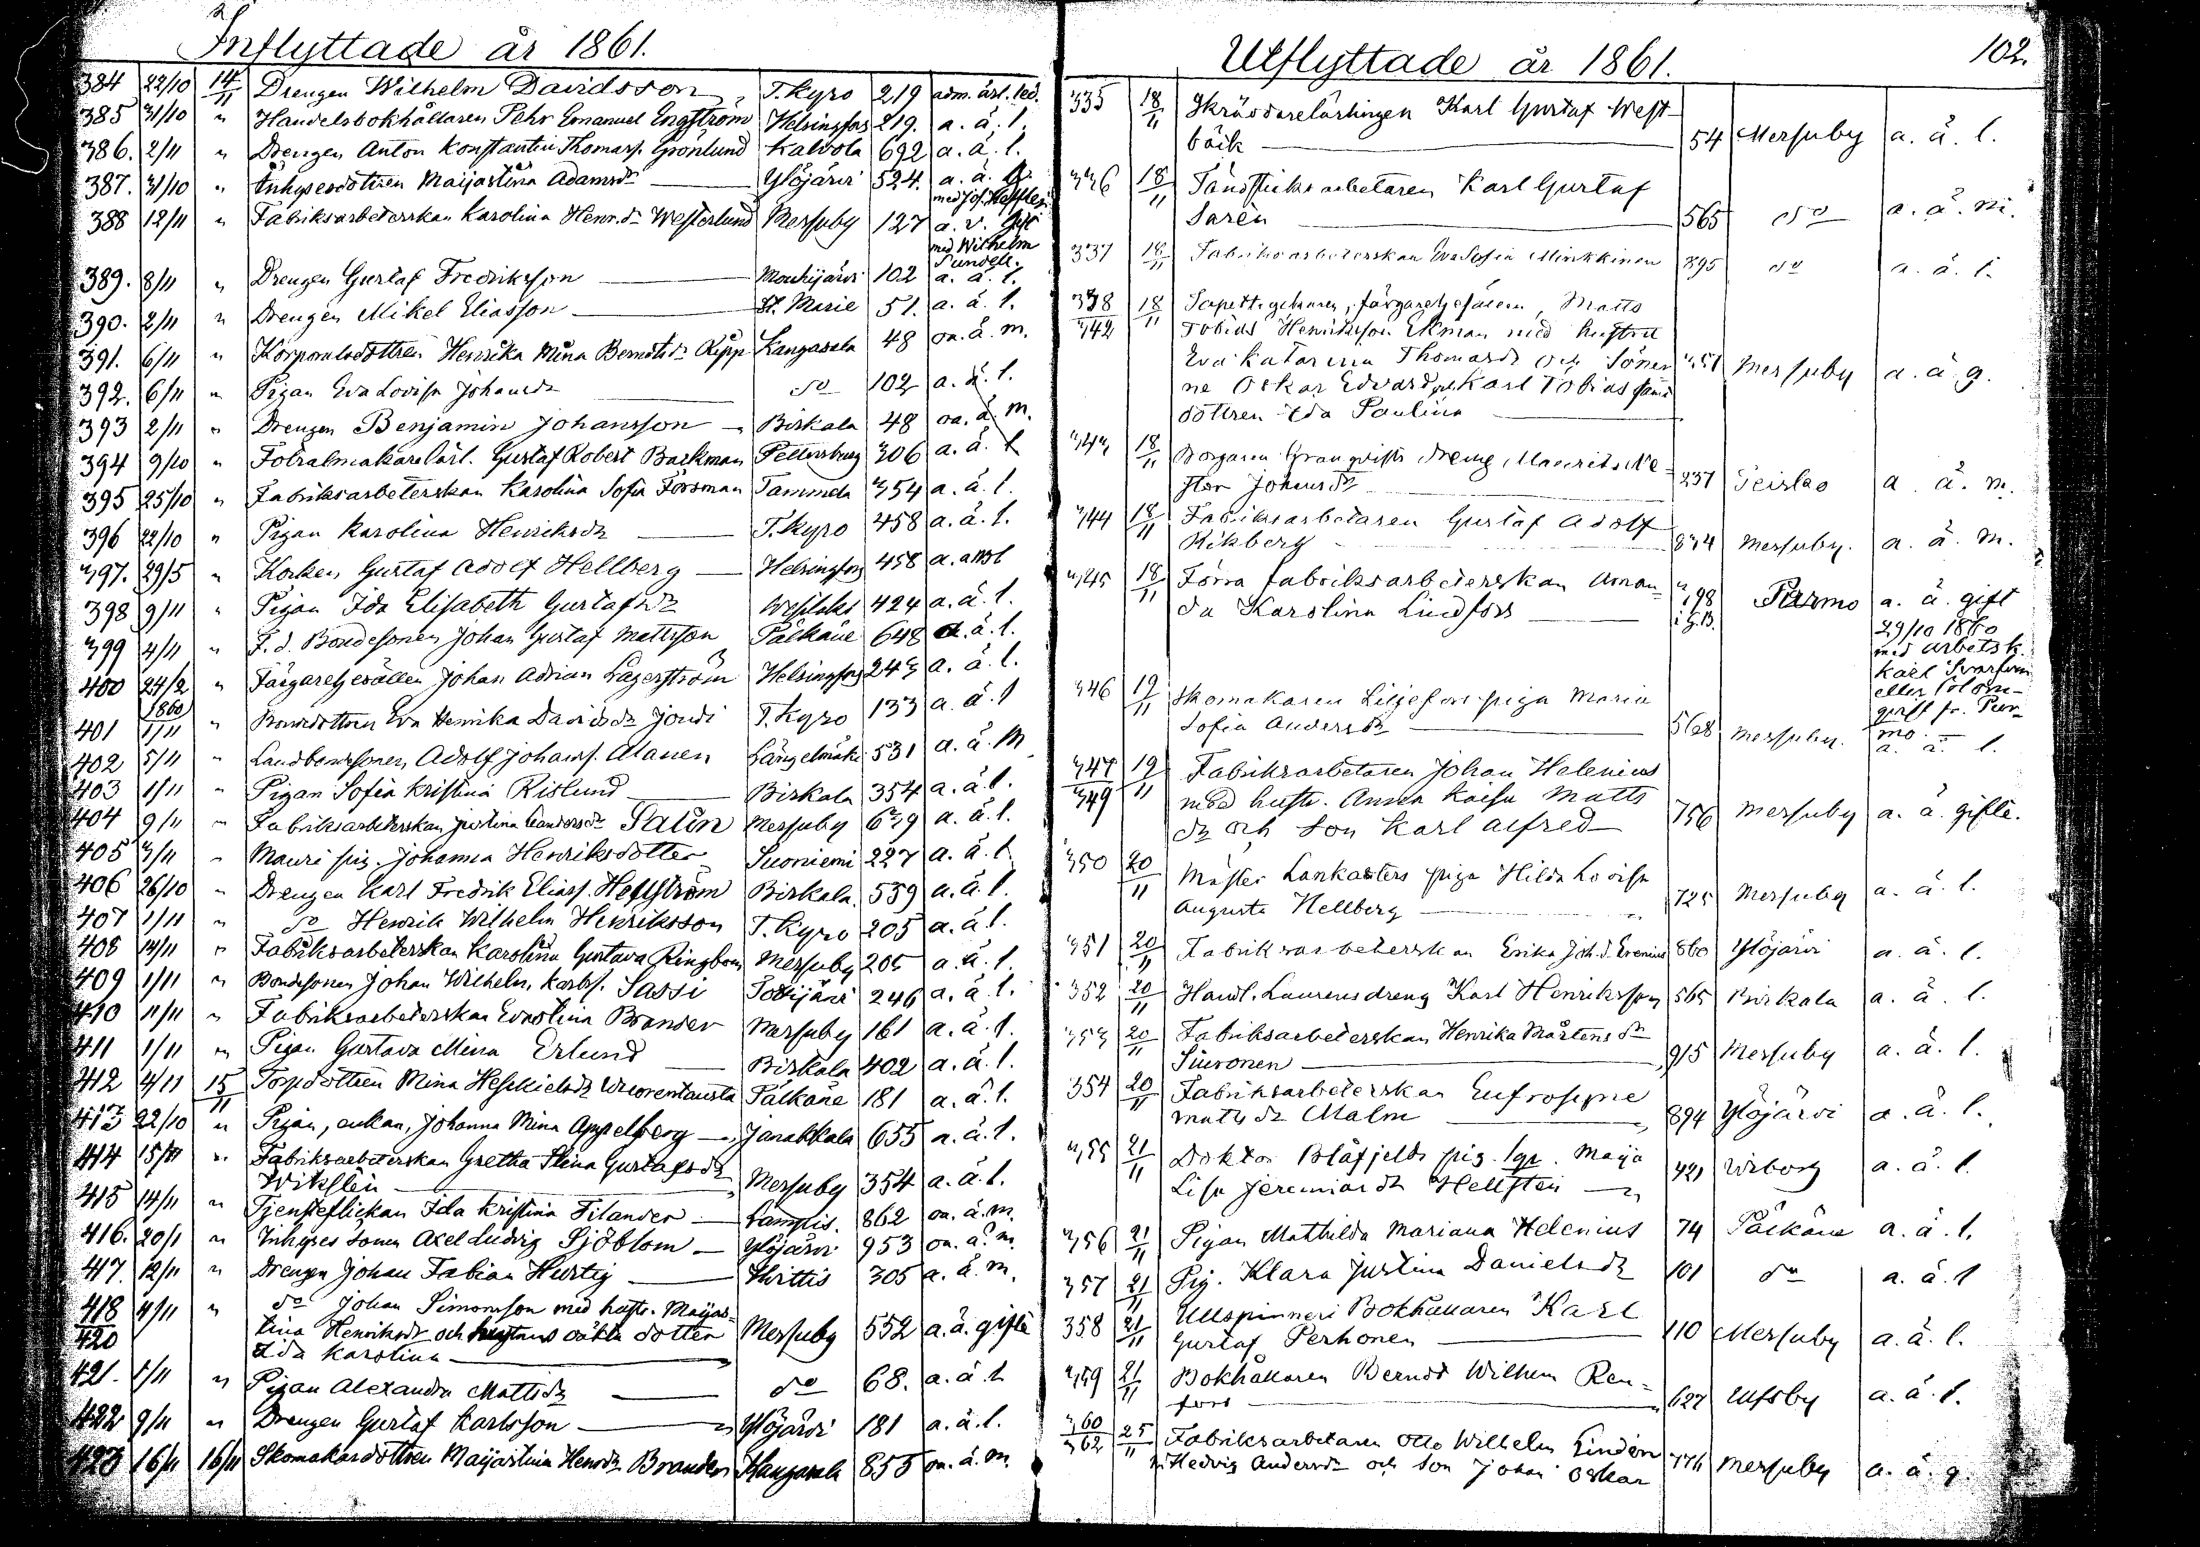 Inflyttade år 1861.
384 22/10 14/11 Drengen Wilhelm Davidsson T. Kyro 219 adm. årl. led.
385 31/10 " Handelsbokhållaren Pehr Emanuel Engström Helsingfors 219. a. å. l.
386. 2/11 " Drengen Anton Konstantin Thomass. Grönlund Kalvola 692 a. å. l.
387. 31/10 " Inhysesdottren Maijastina Adamsdr Ylöjärvi 524. a. å.
med Jos.
388 12/11 " Fabriksarbeterskan Karolina Henr.dr Westerlund Messuby 127 a. v. gift
med Wilhelm
Sundell.
389. 8/11 " Drengen Gustaf Fredriksson Mouhijärvi 102 a. å. l.
390. 2/11 " Drengen Mikel Eliasson St. Marie 51. a. å. l.
391. 6/11 " Korporalsdottren Henrika Mina Berndtsdr Ripp Kangasala 48 oa. å. m.
392. 6/11 " Pigan Eva Lovisa Johansdr do 102 a. å. l.
393 2/11 " Drengen Benjamin Johansson Birkala 48 oa. å. m.
394 9/10 " Fotralmakarelärl. Gustaf Robert Backman Pettersburg 306 a. å. l
395 25/10 " Fabriksarbeterskan Karolina Sofia Forsman Tammela 354 a. å. l.
396 22/10 " Pigan Karolina Henriksdr T. Kyro 458 a. å. l.
397. 29/5 " Kocken Gustaf Adolf Hellberg Helsingfors 458 a.
398 9/11 " Pigan Ida Elisabeth Gustafsdr Wesilaks 424 a. å. l.
399 4/11 " F. d. Bondesonen Johan Gustaf Mattsson Pälkäne 648 a. å. l.
400 24/2 " Färgaregesällen Johan Adrian Lagerström Helsingfors 243 a. å. l.
1860
401 1/11 " Bondedottren Eva Henrika Davidsdr Jondi T. Kyro 133 a. å. l
402 5/11 " Landbondesonen, Adolf Johanss. Alanen Längelmäki 531 a. å. m
403 1/11 " Pigan Sofia Kristina Rislund Birkala 354 a. å. l.
404 9/11 " Fabriksarbeterskan Justina Leandersdr Salin Messuby 639 a. å. l.
405 3/11 " Mauri pig. Johanna Henriksdotter Suoniemi 227 a. å. l.
406 26/10 " Drengen Karl Fredrik Eliass. Hellström Birkala 539 a. å. l.
407 1/11 " do Henrik Wilhelm Henriksson T. Kyro 205 a. å. l.
408 14/11 " Fabriksarbeterskan Karolina Gustava Ringbom Messuby 205 a. å. l.
409 1/11 " Bondesonen Johan Wilhelm, Karlss. Sassi Tottijärvi 246 a. å. l.
410 11/11 " Fabriksarbeterskan Evastina Brander Messuby 161 a. å. l.
411 1/11 " Pigan Gustava Mina Erlund Birkala 402 a. å. l.
412 4/11 15/11 Torpdottren Mina Heskielsdr Wuorentausta Pälkäne 181 a. å. l.
413 22/10 " Pigan, enkan, Johanna Mina Appelberg Janakkala 655 a. å. l.
414 15/11 " Fabriksarbeterskan Gretha Stina Gustafsdr
Wiksten Messuby 354 a. å. l.
415 14/11 " Tjensteflickan Ida Kristina Filander Lampis. 862 oa. å. m.
416. 20/1 " Inhyses sonen Axel Ludvig Sjöblom Ylöjärvi 953 oa. å. m.
417 12/11 " Drengen Johan Fabian Hurtig Hvittis 305 a. å. m.
418 4/11 " do Johan Simonsson med hustr. Maijas-
420 tina Henriksdr och hustruns oäkta dotter Messuby 552 a. å. gifte
Ida Karolina
421. 1/11 " Pigan Alexandra Mattsdr do 68. a. å. l.
422 9/11 " Drengen Gustaf Karlsson Ylöjärvi 181 a. å. l.
423 16/11 16/11 Skomakardottren Maijastina Henrdr Brander Kangasala 855 oa. å. m.
Utflyttade år 1861. 102.
335 18/11 Skräddarelärlingen Karl Gustaf West-
bäck 54 Messuby a. å. l.
336 18/11 Tändsticks arbetaren Karl Gustaf
Sarén 565 do a. å. m.
337 18/11 Fabriksarbeterskan Eva Sofia Minkkinen 895 do a. å. l.
338 18/11 färgaregesällen, Matts
342 Tobias Henriksson Ekman med hustru
Eva Katarina Thomasdr och Söner 351 Messuby a. å. g.
ne Oskar Edvard, Karl Tobias samt
dottren Ida Paulina
343 18/11 Borgaren Granqvists dreng, Mauritz Ne-
stor Johansdr 237 Teisko a. å. m.
344 18/11 Fabriksarbetaren Gustaf Adolf
Rikberg 834 Messuby. a. å. m.
345 18/11 Förra fabriksarbeterskan Aman-
da Karolina Lindfors 198 Purmo a. å. gift
i G.B. 29/10 1860
med arbetsk.
Karl
eller
fr. Pur-
mo.
346 19/11 Skomakaren Liljefors piga Maria
Sofia Andersdr 568 Messuby. a. å. l.
347 19/11 Fabriksarbetaren Johan Helenius
349 med hustr. Anna Kaisa Matts
dr och son Karl Alfred 756 Messuby a. å. gifte.
350 20/11 Mäster Lankasters piga Hilda Lovisa
Augusta Hellberg 725 Messuby a. å. l.
351 20/11 Fabriksarbeterskan Erika Joh.d. Evenius 860 Ylöjärvi a. å. l.
352 20/11 Handl. Laurens dreng Karl Henriksson 565 Birkala a. å. l.
353 20/11 Fabriksarbeterskan Henrika Mårtensdr
Siuronen 915 Messuby a. å. l.
354 20/11 Fabriksarbeterskan Eufrosyne
Mattsdr Malm 894 Ylöjärvi a. å. l.
355 21/11 Doktor Blåfjelds pig. Maija
Lisa Jeremiasdr Hellsten 421 Wiborg a. å. l.
356 21/11 Pigan Mathilda Mariana Helenius 74 Pälkäne a. å. l.
357 21/11 Pig. Klara Justina Danielsdr 101 do a. å. l
358 21/11 Ullspinneri Bokhållaren Karl
Gustaf Perhonen 110 Messuby a. å. l.
359 21/11 Bokhållaren Berndt Wilhelm Ren-
fors 627 Ulfsby a. å. l.
360 25/11 Fabriksarbetaren Otto Wilhelm Lindén
362 Hedvig Andersdr och Son Johan Oskar 776 Messuby a. å. g.